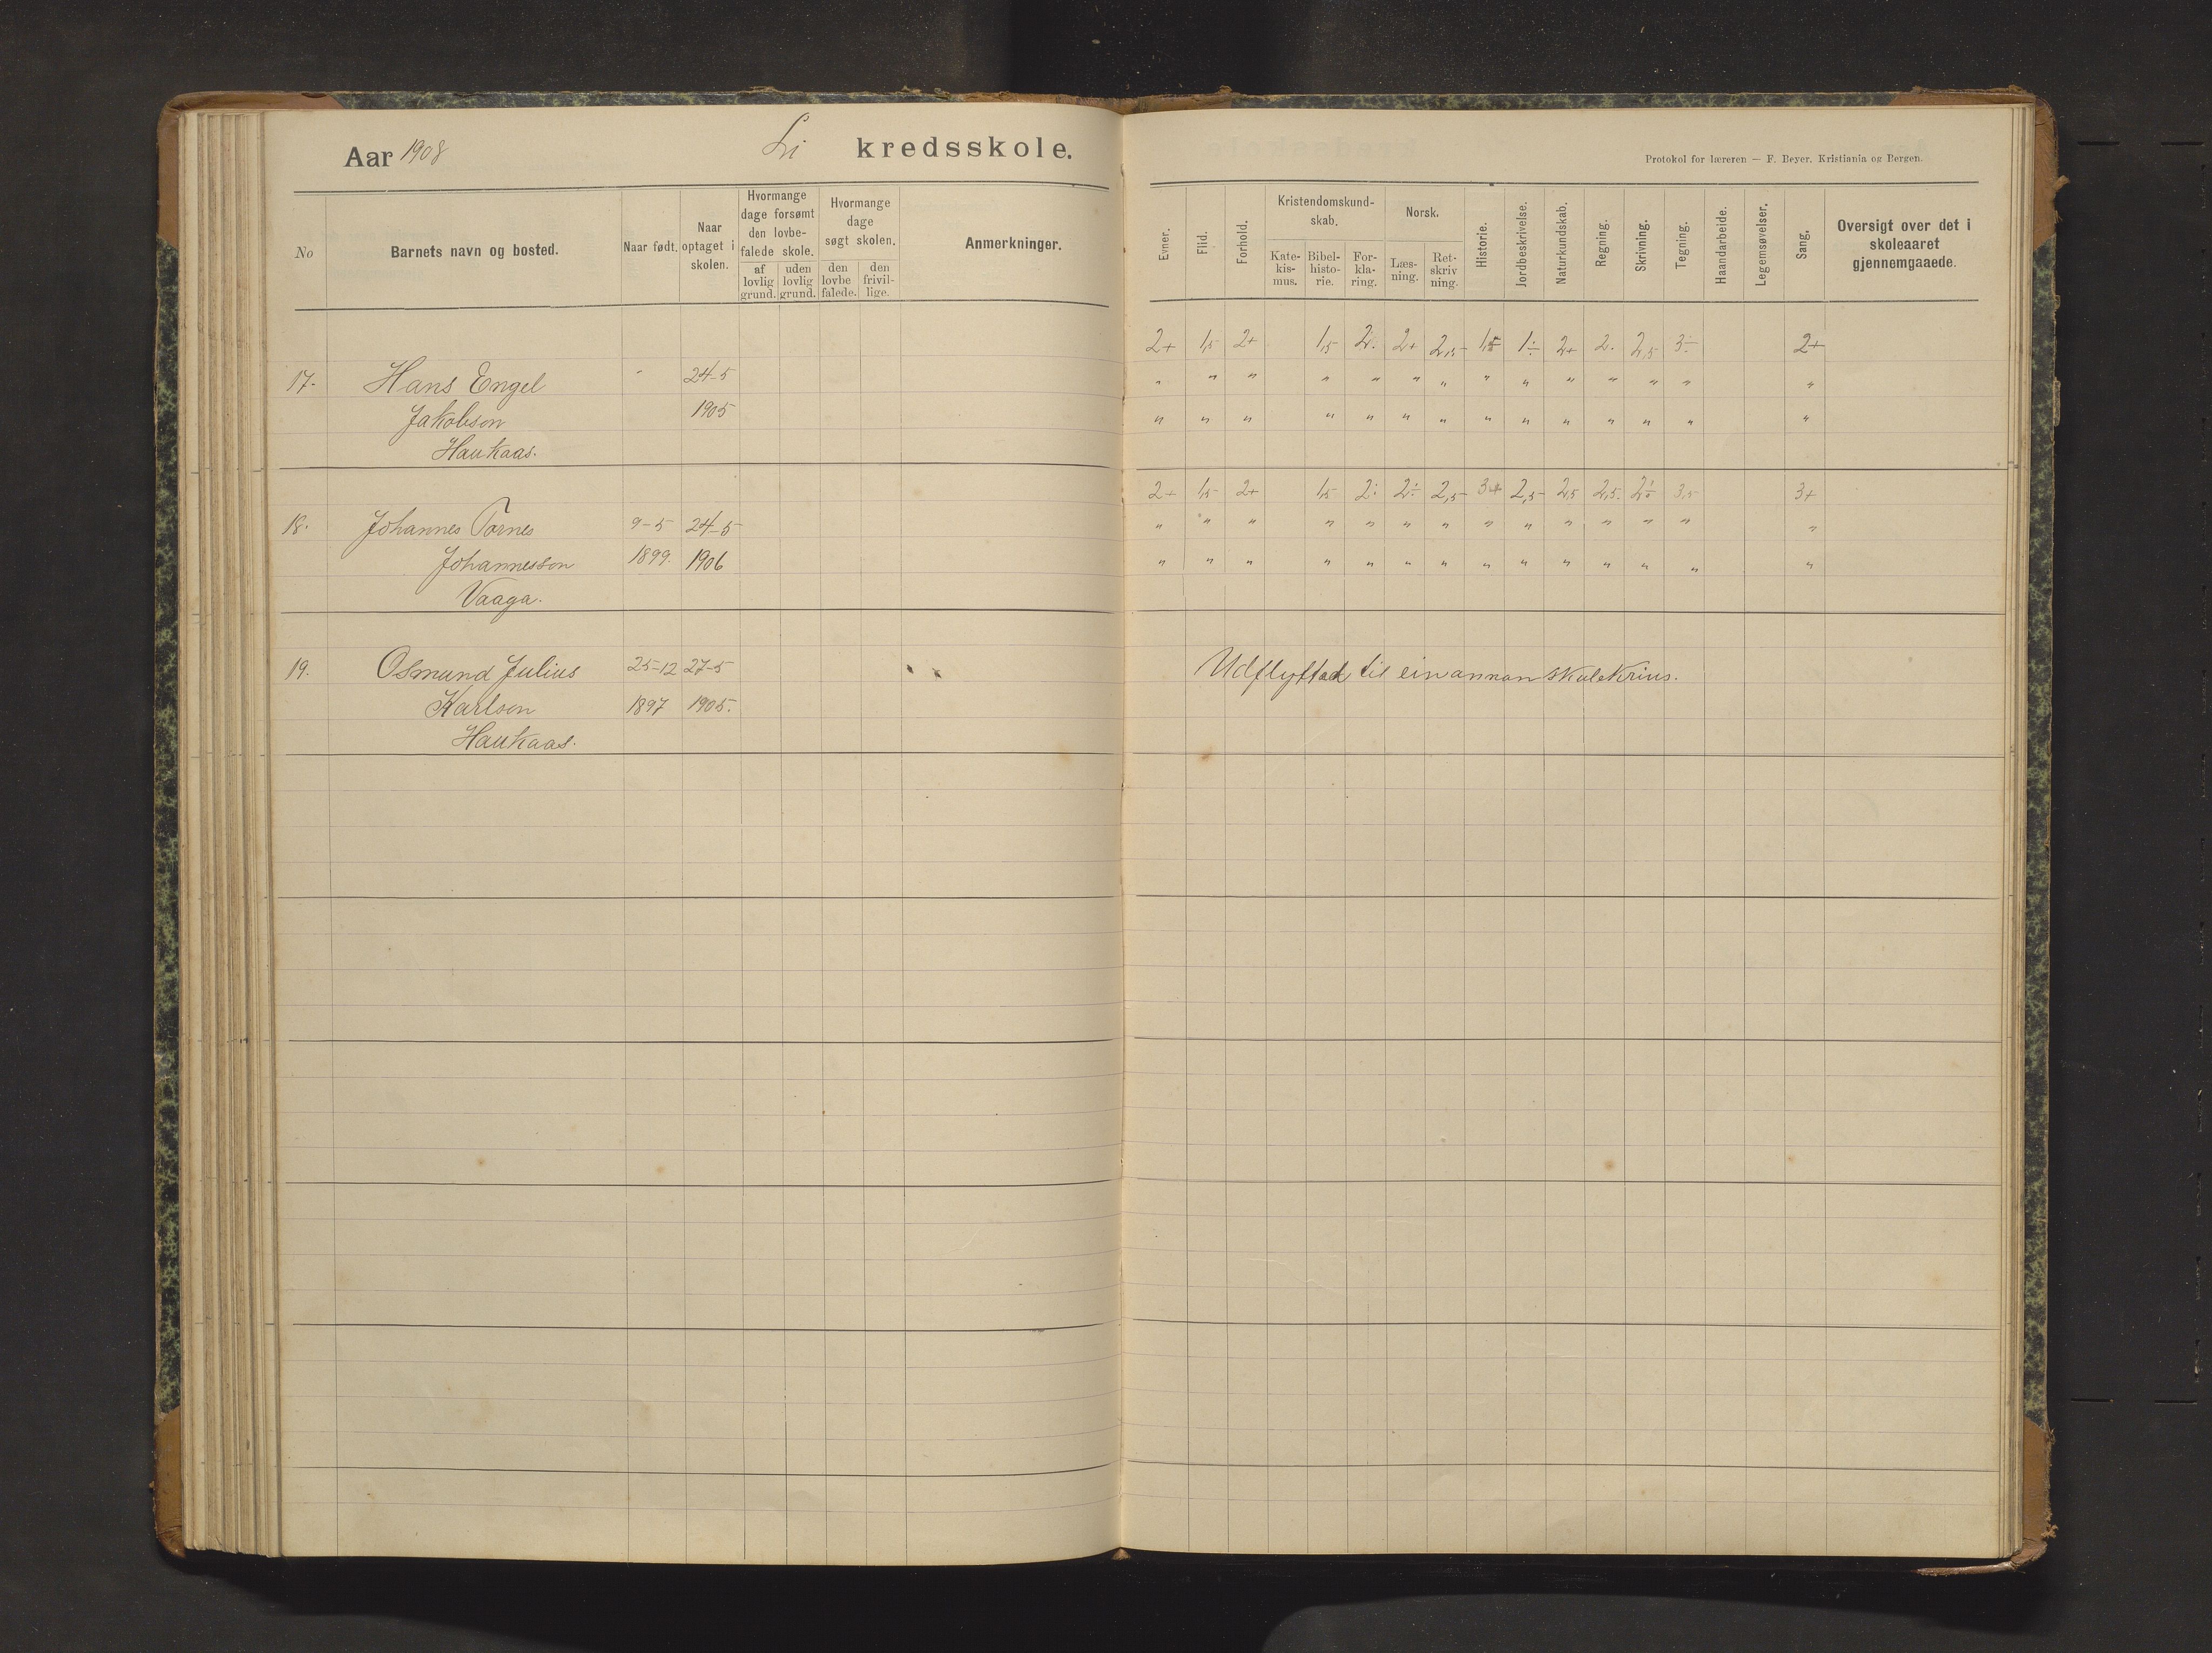 Aar 1908 Li kredsskole.
Protokol for læreren — F. Beyer, Kristiania og Bergen.
No
Barnets navn og bosted.
Naar født.
Naar optaget i skolen.
Hvormange dage forsømt den lovbefalede skole.
af lovlig grund.
uden lovlig grund.
Hvormange dage søgt skolen.
den lovbefalede.
den frivillige.
Anmerkninger.
Evner.
Flid.
Forhold.
Kristendomskundskab.
Katekismus.
Bibelhistorie.
Forklaring.
Norsk.
Læsning.
Retskrivning.
Historie.
Jordbeskrivelse.
Naturkundskab.
Regning.
Skrivning.
Tegning.
Haandarbeide.
Legemsøvelser.
Sang.
Oversigt over det i skoleaaret gjennemgaaede.
2+ 1,5 2+ 1,5 2÷ 2+ 2,5 1,5 1÷ 2+ 2. 2,5 3÷ 2+
17. Hans Engel " 24-5 " " " " " " " " " " " " " "
Jakobson 1905 " " " " " " " " " " " " " "
Haukaas.
2+ 1,5 2+ 1,5 2÷ 2÷ 2,5 3+ 2,5 2,5 2,5 2÷ 3,5 3+
18. Johannes Tornes 9-5 24-5 " " " " " " " " " " " " " "
Johannesson 1899. 1906 " " " " " " " " " " " " " "
Vaaga.
19. Osmund Julius 25-12 27-5 Udflyttad til ein annan skulekrins.
Karlson 1897 1905.
Haukaas.